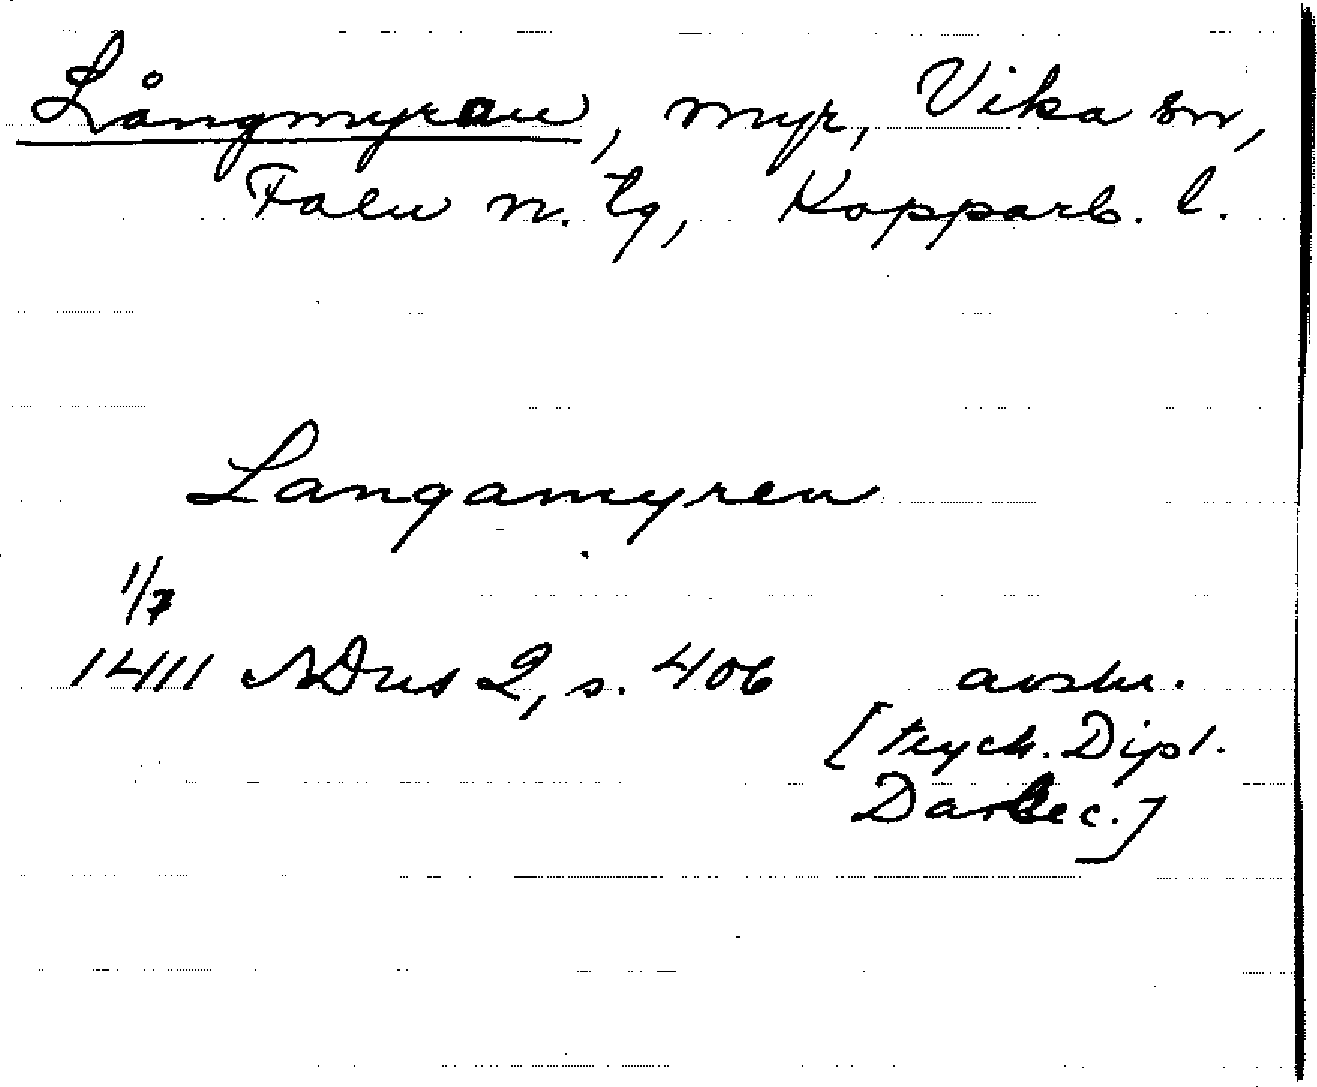 Långmyran, myr, Vika sn,
Falu n. tg, Kopparb. l.
Langamyren
1/7
1411 SDns 2, s. 406 avskr.
[tryck. Dipl.
Dalec.]